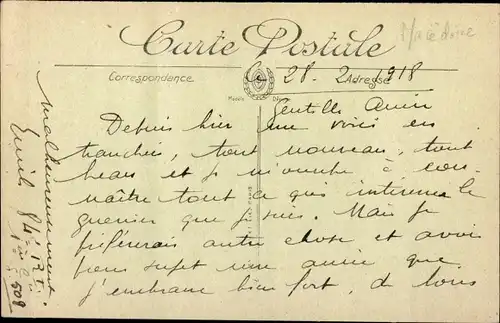 Macédoine
Carte Postale
Correspondance
Adresse
Le 28. 2. 1918
Gentille Amie
Depuis hier me voici en
tranchée, tout nouveau, tout
beau et je m'ennuie à con-
naître tout ce qui intéresse le
guerrier que je suis. Mais je
préférerais autre chose et avoir
pour sujet une amie que
j'embrasse bien fort, de tous
malheureusement
Emile